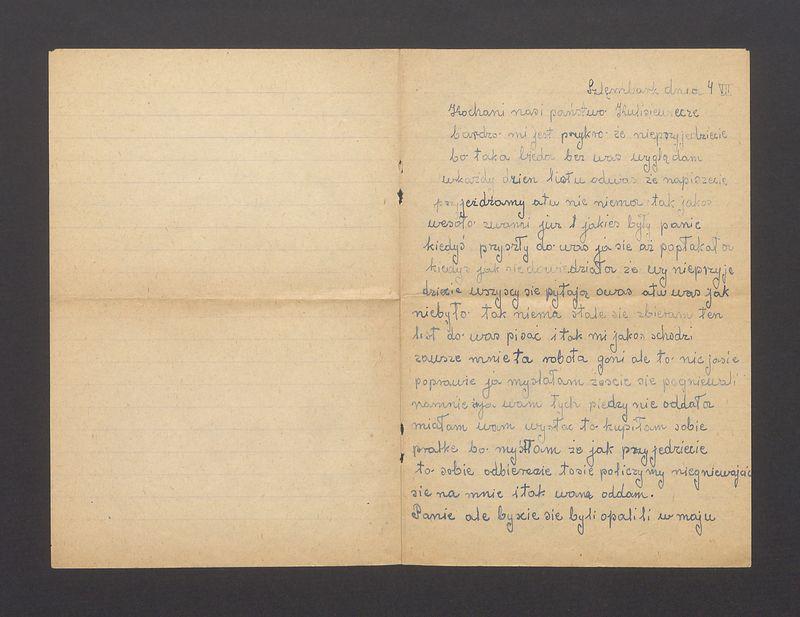 Szlęmbark dnia 4 VII
Kochani nasi państwo Kulisiewicze
bardzo mi jest przykro że nieprzyjedziecie
bo taka bieda bez was wyglądam
wkażdy dzien listu odwas że napiszecie
przyjeżdżamy atu nie niema tak jakoś
wesoło zwanni już 1 jakies były panie
kiedyś przyszły do was ja sie aż popłakała
kiedys jak sie dowiedziała że wy nieprzyje
dziecie wszyscy sie pytają owas atu was jak
niebyło tak niema stale sie zbieram ten
list do was pisać itak mi jakos schodzi
zawsze mnie ta robota goni ale to nic jasie
poprawie ja myslałam żescie sie pogniewali
namnie żeja wam tych piedzy nie oddała
miałam wam wysłac to kupiłam sobie
pralke bo myślłam że jak przyjedziecie
to sobie odbierecie tosie policzymy niegniewajcie
sie na mnie itak wam oddam.
Panie ale byscie sie byli opalili w maju